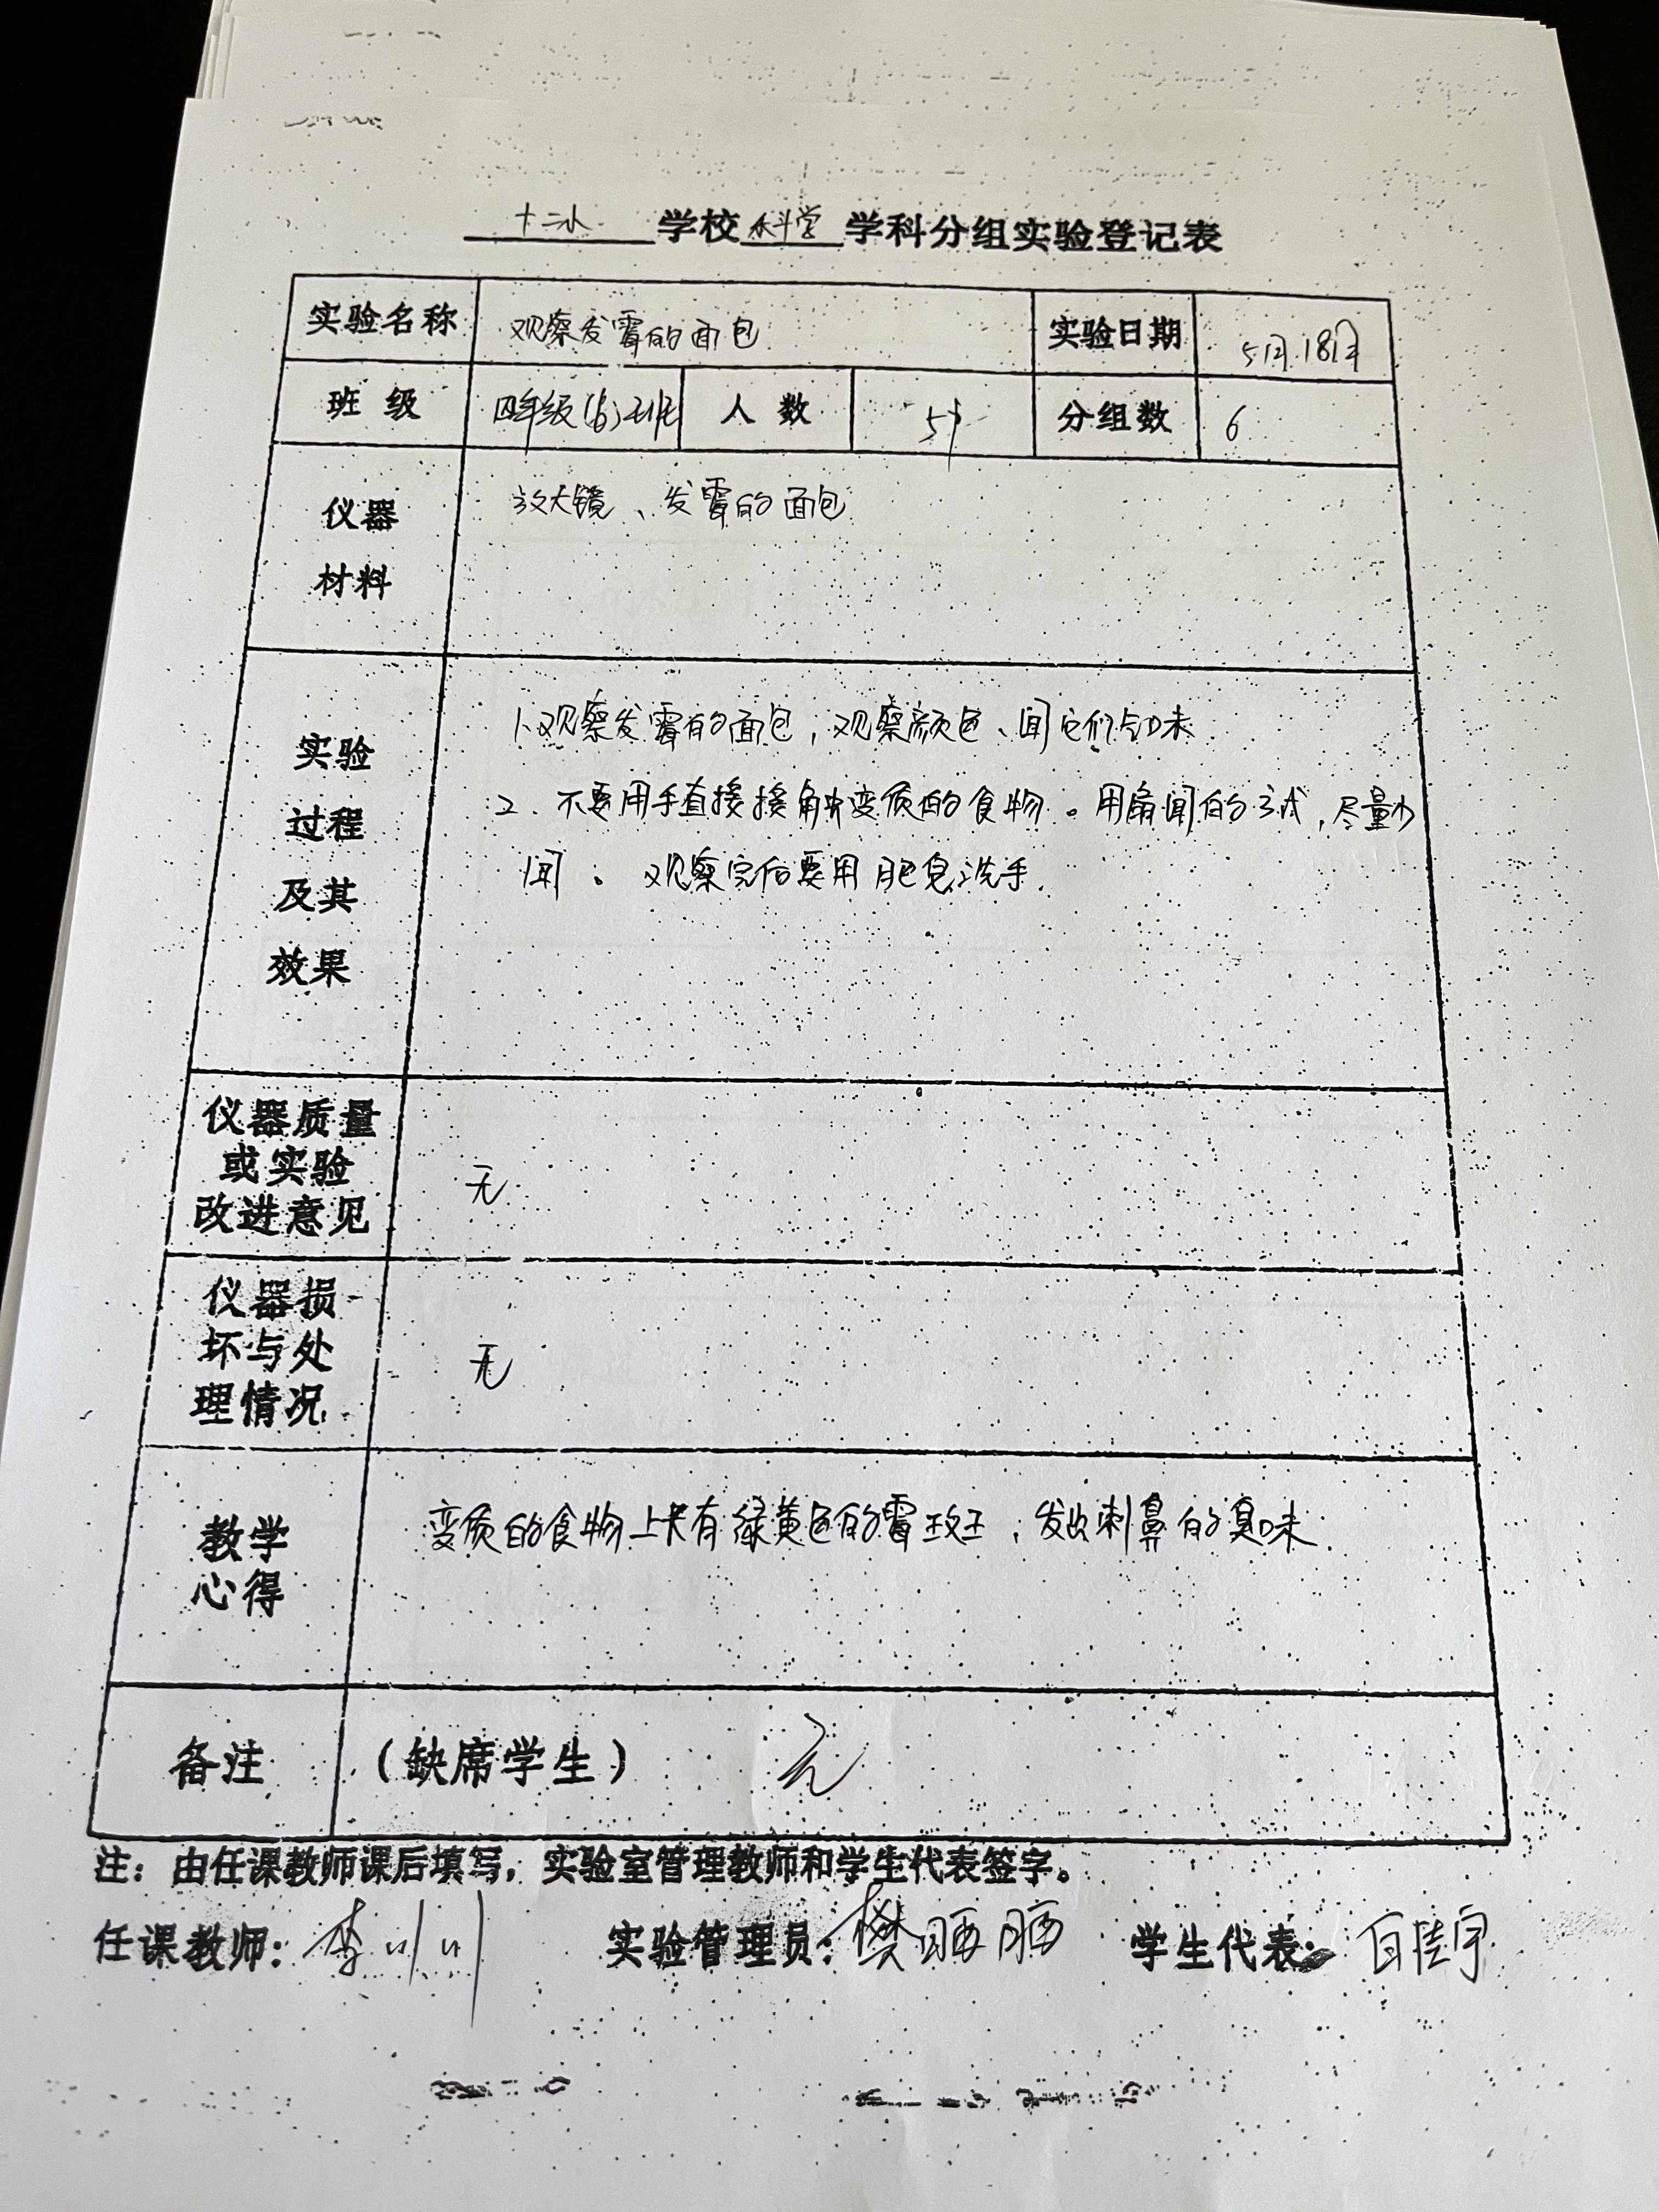 十二小学校科学学科分组实验登记表
实验名称 观察发霉的面包 实验日期 5月18日
班级 四年级(6)班 人数 51 分组数 6
仪器 放大镜、发霉的面包
材料
实验 1、观察发霉的面包，观察颜色、闻它们气味
过程 2、不要用手直接接触变质的食物。用扇闻的方式，尽量少
及其 闻。观察完后要用肥皂洗手.
效果
仪器质量
或实验 无
改进意见
仪器损
坏与处 无
理情况
教学 变质的食物上长有绿黄色的霉斑，发出刺鼻的臭味
心得
备注 （缺席学生） 无
注：由任课教师课后填写，实验室管理教师和学生代表签字。
任课教师：李川川 实验管理员：樊 学生代表：